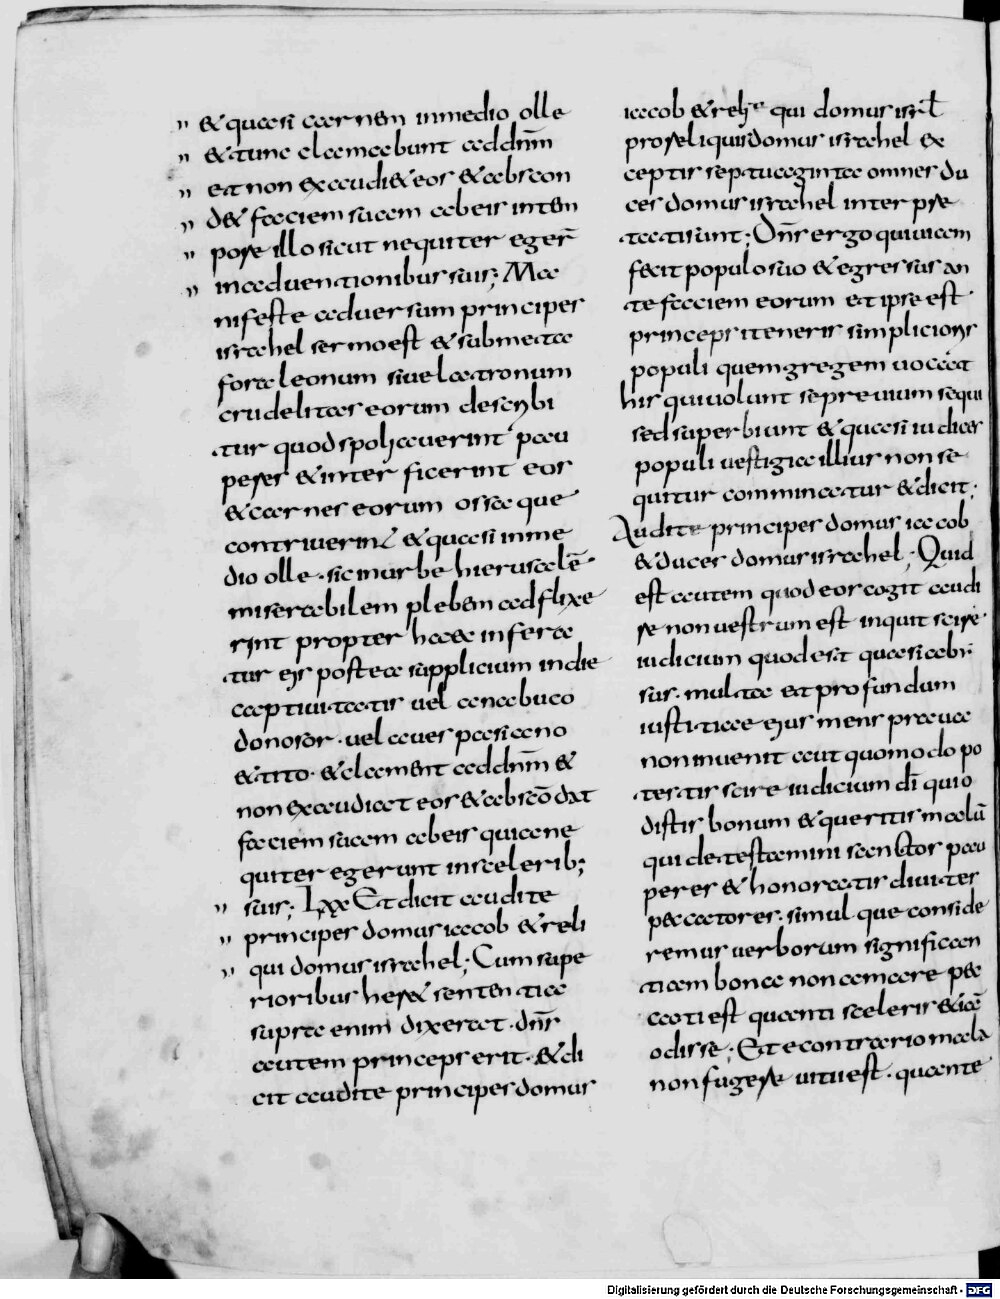 " & quasi carnem inmedio olle
" & tunc clamabunt addnm̄
" et non exaudi& eos & abscon
" d& faciem suam abeis intem
" pore illo sicut nequiter eger̄
" inaduentionibus suis; Ma
nifeste aduersum principes
israhel sermo est & submeta
fora leonum siue latronum
crudelitas eorum describi
tur quod spoliauerint pau
peres & interficerint eos
& carnes eorum ossa que
contriuerint & quasi inme
dio olle. sic inurbe hierusalē
miserabilem plebem adflixe
rint propter haec infera
tur eis postea supplicium indie
captiuitatis uel anabuco
donosor. uel auespasiano
& tito. & clament addnm̄ &
non exaudiat eos & abscōdat
faciem suam abeis quia ne
quiter egerunt insceleribus;
" suis; Lxx Et dicit audite
" principes domus iacob & reli
" qui domus israhel; Cum supe
rioribus her& sententia
supra enim dixerat. dn̄s
autem princeps erit. & di
cit audite principes domus
iacob & reliq̄ qui domus isrl̄
pro reliquis domus israhel ex
ceptis septuaginta omnes du
ces domus israhel interpre
tati sunt; Dn̄s ergo qui uiam
fecit populo suo & egressus an
te faciem eorum et ipse est
princeps iteneris simplicioris
populi quem gregem uocat
his qui uolunt se preuium sequi
sed superbiunt & quasi iudices
populi uestigia illius non se
quitur comminatur & dicit;
Audite principes domus iacob
& duces domus israhel; Quid
est autem quod eos cogit audi
re non uestrum est inquit scire
iudicium quod erat quasi abis
sus. multa et profundam
iustitiae eius mens praua
non inuenit aut quomodo po
testis scire iudicium dī qui o
distis bonum & queritis malū
qui detestamini sanctos pau
peres & honoratis diuites
peccatores. simul que conside
remus uerborum significan
tiam bona non amare pec
cati est quanti sceleris & iā
odisse; Et e contrario mala
non fugere uitii est. quante
Digitalisierung gefördert durch die Deutsche Forschungsgemeinschaft - DFG